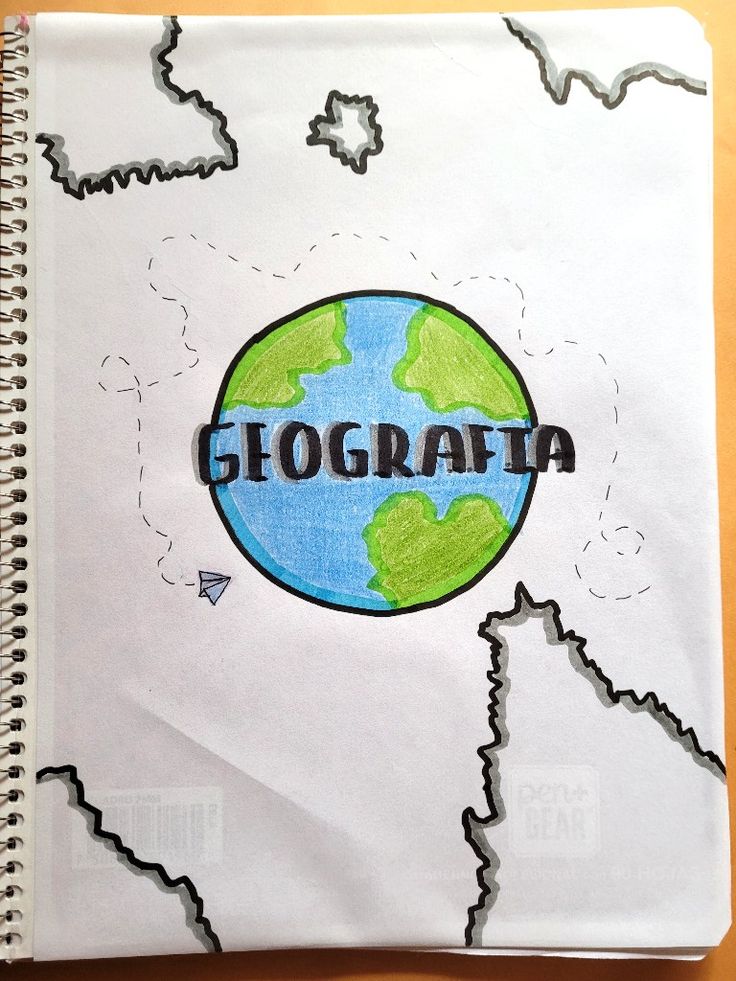 GEOGRAFIA
pen+
GEAR
90 HOJAS